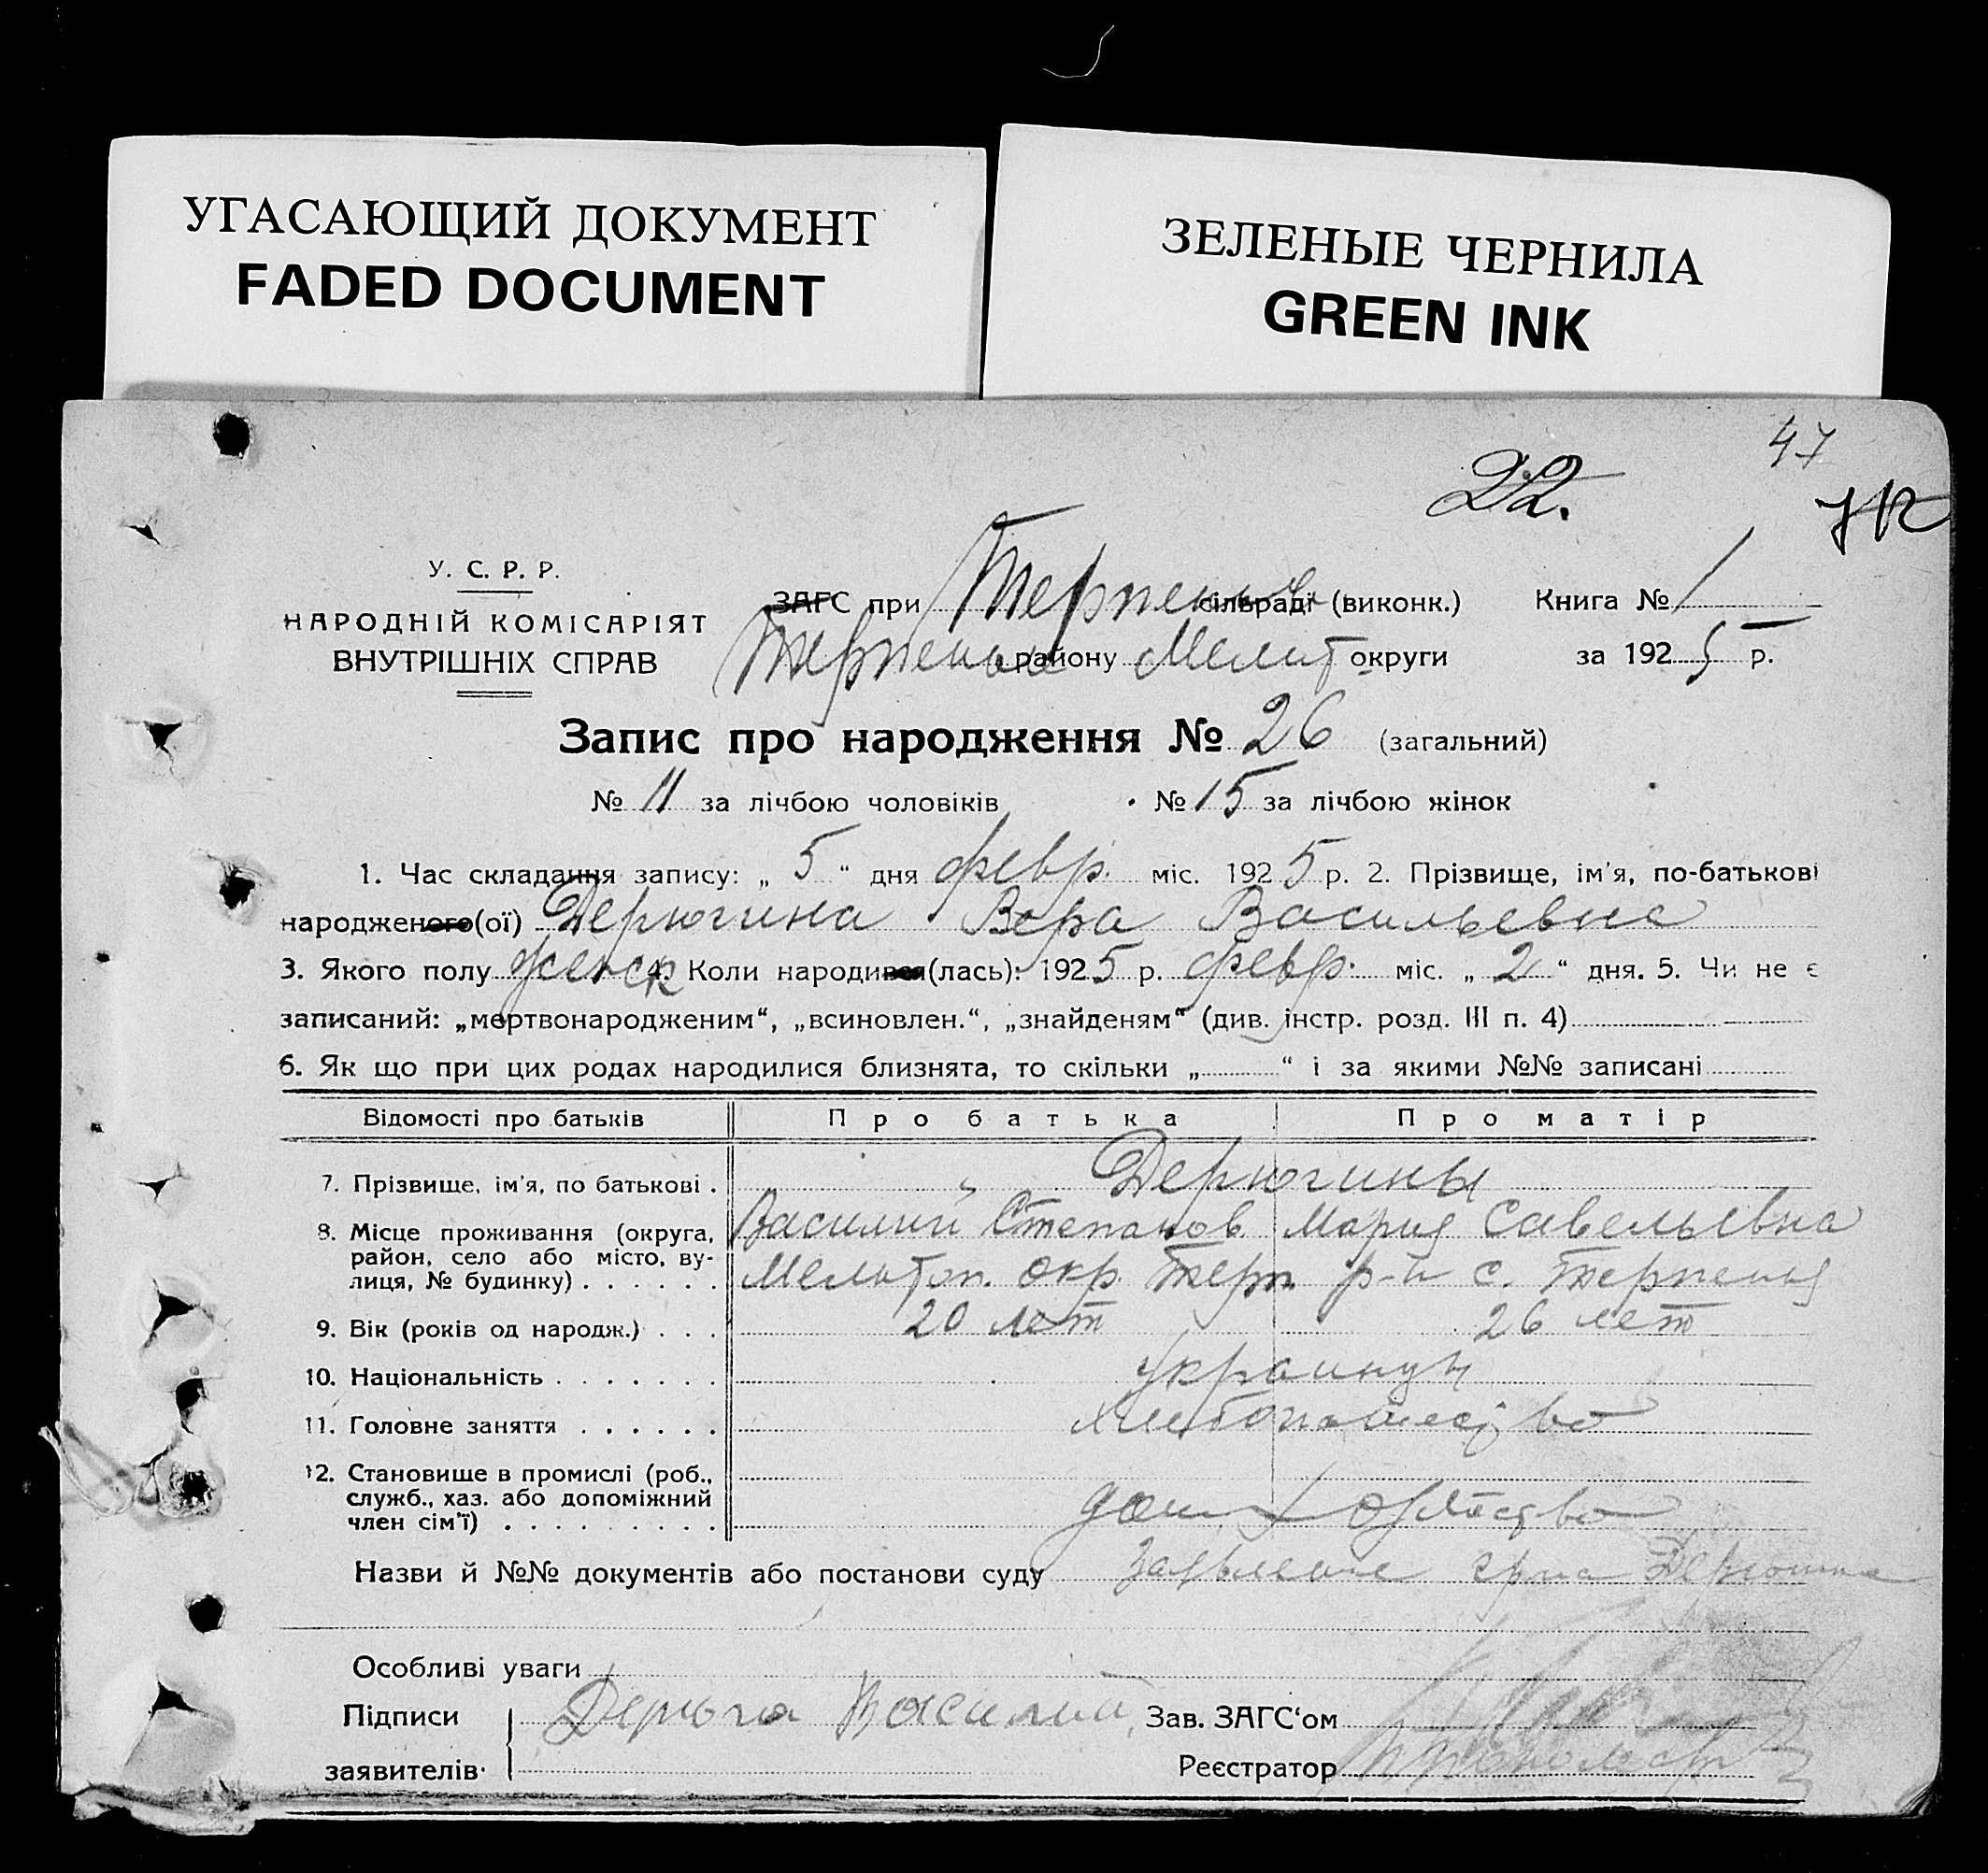 УГАСАЮЩИЙ ДОКУМЕНТ
FADED DOCUMENT
ЗЕЛЕНЫЕ ЧЕРНИЛА
GREEN INK
47
22.
У. С. Р. Р.
НАРОДНІЙ КОМІСАРІЯТ
ВНУТРІШНІХ СПРАВ
ЗАГС при Терпенье сільраді (виконк.) Книга № 1
Терпенье району Мелит округи за 1925 р.
Запис про народження № 26 (загальний)
№ 11 за лічбою чоловіків № 15 за лічбою жінок
1. Час складання запису: „ 5 “ дня февр. міс. 1925 р. 2. Прізвище, ім'я, по-батькові
народженого(ої) Дерюгина Вера Васильевна
3. Якого полу женск 4. Коли народився(лась): 1925 р. февр. міс. „ 2 “ дня. 5. Чи не є
записаний: „мертвонародженим“, „всиновлен.“, „знайденям“ (див. інстр. розд. III п. 4)
6. Як що при цих родах народилися близнята, то скільки „ “ і за якими №№ записані
Відомості про батьків Про батька Про матір
7. Прізвище, ім'я, по батькові . Дерюгины
Василий Степанов Мария Савельевна
8. Місце проживання (округа, район, село або місто, вулиця, № будинку) . . . . . . Мелитоп. окр. Терп. р-н с. Терпенья
9. Вік (років од народж.) . . . 20 лет 26 лет
10. Національність . . . . . . . украинцы
11. Головне заняття . . . . . . хлебопашество
12. Становище в промислі (роб., служб., хаз. або допоміжний член сім'ї) . . . . . . . . .
Назви й №№ документів або постанови суду Заявление гр-на
Особливі уваги
Підписи Дерюга Василий Зав. ЗАГС‘ом
заявителів Реєстратор